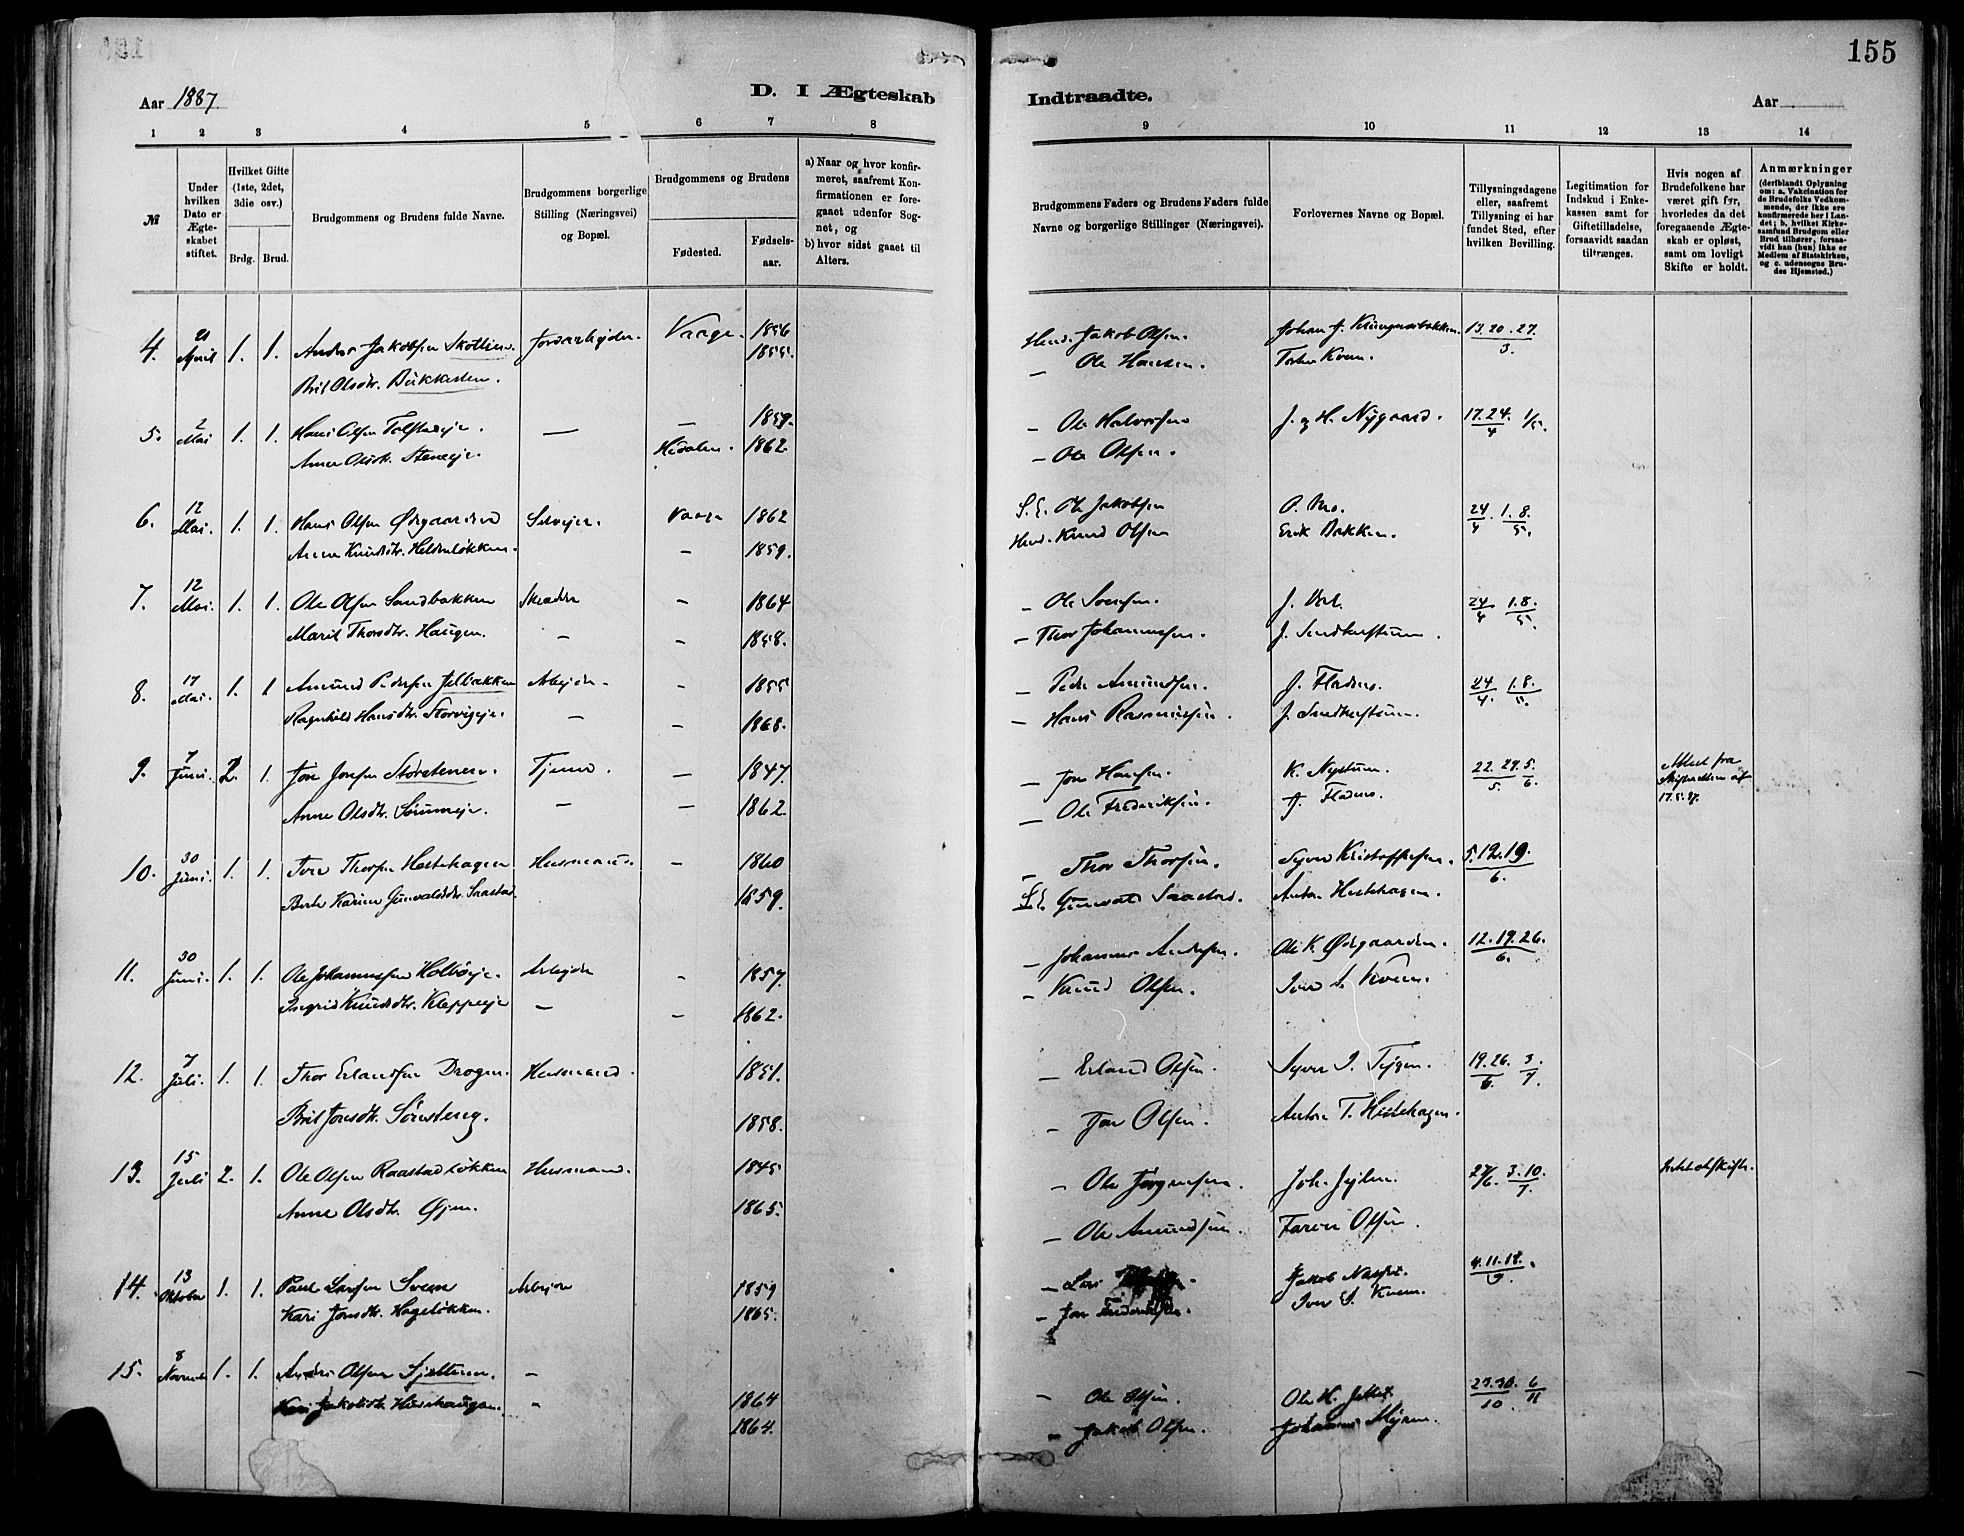 155
Aar 1887.
D. I Ægteskab
Indtraadte.
Aar
1 2 3 4 5 6 7 8
9 10 11 12 13 14
№
Under hvilken Dato er Ægteskabet stiftet.
Hvilket Gifte (1ste, 2det, 3die osv.)
Brdg. Brud.
Brudgommens og Brudens fulde Navne.
Brudgommens borgerlige Stilling (Næringsvei) og Bopæl.
Brudgommens og Brudens
Fødested.
Fødselsaar.
a) Naar og hvor konfirmeret, saafremt Konfirmationen er foregaaet udenfor Sognet, og
b) hvor sidst gaaet til Alters.
Brudgommens Faders og Brudens Faders fulde Navne og borgerlige Stillinger (Næringsvei).
Forlovernes Navne og Bopæl.
Tillysningsdagene eller, saafremt Tillysning ei har fundet Sted, efter hvilken Bevilling.
Legitimation for Indskud i Enkekassen samt for Giftetilladelse, forsaavidt saadan tiltrænges.
Hvis nogen af Brudefolkene har været gift før, hvorledes da det foregaaende Ægteskab er opløst, samt om lovligt Skifte er holdt.
Anmærkninger
(deriblandt Oplysning om: a. Vakcination for de Brudefolks Vedkommende, der ikke ere konfirmerede her i Landet; b. hvilket Kirkesamfund Brudgom eller Brud tilhører, forsaavidt han (hun) ikke er Medlem af Statskirken, og c. udensogns Brudes Hjemsted.)
4. 21 April 1. 1. Anders Jakobsen Vaage. 1856 Jakob Olsen. 13. 20. 27. 3.
Brit Olsdtr. 1855. — Ole Hansen. Kvem.
5. 2 Mai 1. 1. Hans Olsen — — 1859. — Ole Halvorsen J. og H. Nygaard. 17. 24. 4 1/5.
Anne Olsdtr. Steneeje. Hedalen. 1862. — Ole Olsen.
6. 12 Mai. 1. 1. Hans Olsen Ødegaarden Selveier. Vaage 1862 S. E. Ole Jakobsen O. 24 4. 1. 8. 5.
Anne Knudsdtr. — 1859. Knud Olsen Erik Bakken.
7. 12 Mai. 1. 1. Ole Olsen Sandbakken Skrædder — 1864 — Ole J. 24 4 1. 8. 5.
Marit Thorsdtr. Haugen. — — 1858. — Thor Johannessen. J.
8. 17 Mai. 1. 1 Amund Pedersen Arbejder — 1855 — Peder Amundsen. J. 24 4. 1. 8. 5.
Ragnhild Hansdtr. Storvigeje. — — 1868. — Hans Rasmussen. J.
9. 7 Juni. 2. 1. Jon Jonsen Storstenen. — 1847. — Jon Hansen. K. Nystuen. 22. 29. 5. 5. 6. Attest fra Skifteretten af 17.5.87.
Anne Olsdtr. — — 1862. — Ole Frederiksen.
10. 30 Juni. 1. 1. Iver Thorsen Hestehagen Husmand. — 1860 — Thor Thorsen. Syver Kristoffersen. 5. 12. 19. 6.
Berte Karine Gunvaldsdtr. Saastad. 1859. S. E. Gunvald Saastad. Anton Hestehagen.
11. 30 Juni. 1. 1. Ole Johannessen Holböeje. Arbejder — 1857. — Johannes Andersen. Ole K. Ødegaarden. 12. 19. 26. 6.
Ingrid Knudsdtr. Kleppeeje — — 1862. — Knud Olsen. Iver S. Kvem.
12. 7 Juli. 1. 1. Thor Erlandsen Drogen. Husmand. 1851. — Erland Olsen. Syver 19. 26. 6. 3 7.
Brit Jonsdtr. Sörusteng. 1858. — Jon Olsen. Anton T. Hestehagen.
13. 15 Juli 2. 1. Ole Olsen Raastadlökken Husmand. 1845 — Ole Jörgensen. Joh. 27/6. 3. 10. 7.
Anne Olsdtr. Øjen. 1865. — Ole Amundsen. Olsen.
14. 13 Oktober 1. 1. Paul Larsen Sveen Arbejder 1859 — Lars Jakob 4. 11. 18. 9.
Kari Jonsdtr. Hagelökken. 1865. — Jon Iver S. Kvem.
15. 8 November 1. 1. Anders Olsen — 1864 — Ole Olsen. Ole H. 23. 30. 10. 6 11
Kari Jakobsdtr. — 1864. — Jakob Olsen. Johannes Myren.